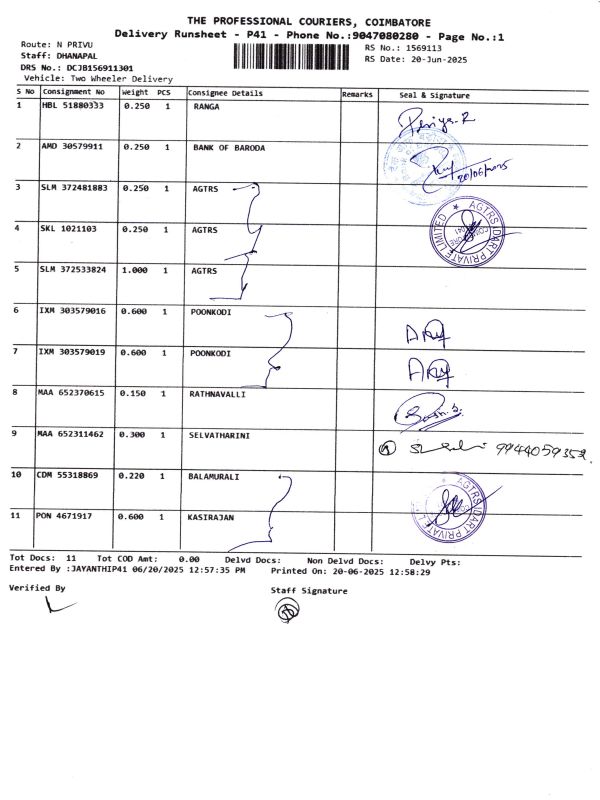 THE PROFESSIONAL COURIERS, COIMBATORE
Delivery Runsheet - P41 - Phone No.:9047080280 - Page No.:1
Route: N PRIVU
RS No.: 1569113
Staff: DHANAPAL
RS Date: 20-Jun-2025
DRS No.: DCJB156911301
Vehicle: Two Wheeler Delivery
S No Consignment No Weight PCS Consignee Details Remarks Seal & Signature
1 HBL 51880333 0.250 1 RANGA Priya.R
2 AMD 30579911 0.250 1 BANK OF BARODA 20/06/2025
3 SLM 372481883 0.250 1 AGTRS
4 SKL 1021103 0.250 1 AGTRS
AGTRS IDART PRIVATE LIMITED
5 SLM 372533824 1.000 1 AGTRS
6 IXM 303579016 0.600 1 POONKODI
7 IXM 303579019 0.600 1 POONKODI
8 MAA 652370615 0.150 1 RATHNAVALLI
9 MAA 652311462 0.300 1 SELVATHARINI 9944059352
10 CDM 55318869 0.220 1 BALAMURALI
AGTRS IDART PRIVATE L
11 PON 4671917 0.600 1 KASIRAJAN
Tot Docs: 11 Tot COD Amt: 0.00 Delvd Docs: Non Delvd Docs: Delvy Pts:
Entered By :JAYANTHIP41 06/20/2025 12:57:35 PM Printed On: 20-06-2025 12:58:29
Verified By
Staff Signature